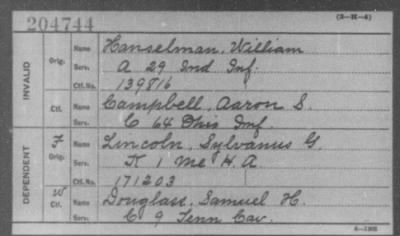 204744
(3-II-4)
INVALID
Orig. Name Hanselman, William
Serv. A 29 Ind Inf.
Ctf. No. 139816
Ctf. Name Campbell, Aaron S.
Serv. C 64 Ohio Inf.
DEPENDENT
F Orig. Name Lincoln, Sylvanus G.
Serv. K 1 Me H.A.
Ctf. No. 171203
W Ctf. Name Douglass, Samuel H.
Serv. C 9 Tenn Cav.